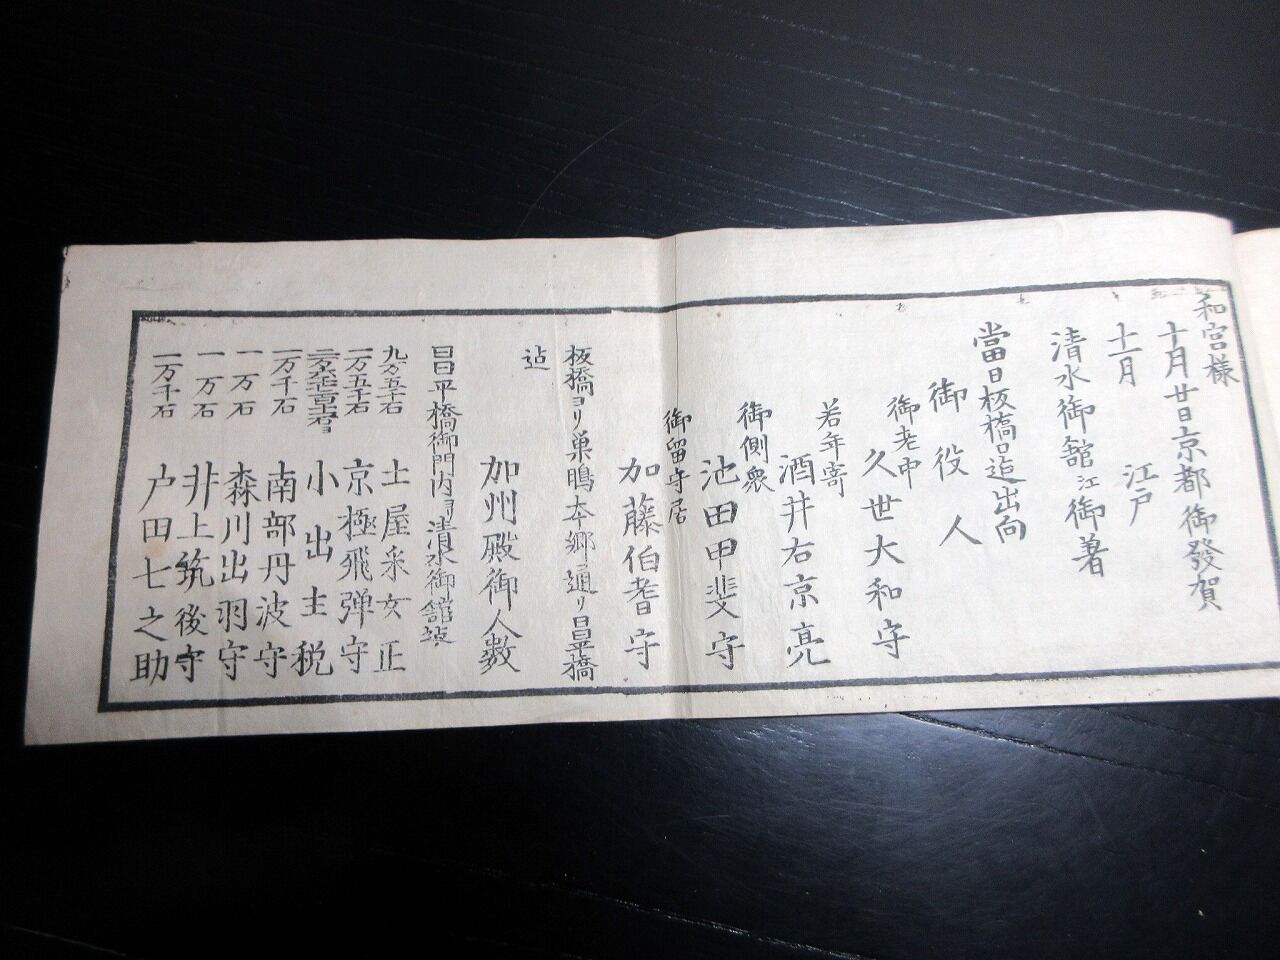 和宮様
十月廿日京都御發賀
十一月 江戸
清水御舘江御著
當日板橋口迠出向
御役人
御老中
久世大和守
若年寄
酒井右京亮
御側衆
池田甲斐守
御留守居
加藤伯耆守
板橋ヨリ巣鴨本郷通リ昌平橋
迠
加州殿御人数
昌平橋御門内ヨリ清水御舘迠
九万五千石 土屋采女正
一万五千石 京極飛弾守
小出主税
一万千石 南部丹波守
一万石 森川出羽守
一万石 井上筑後守
一万千石 户田七之助